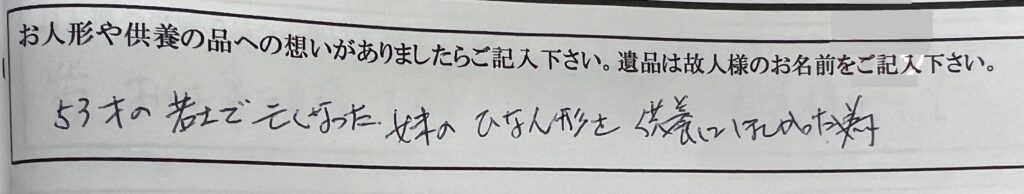 お人形や供養の品への想いがありましたらご記入下さい。遺品は故人様のお名前をご記入下さい。
53才の若さで亡くなった妹のひな人形を供養してほしかった為